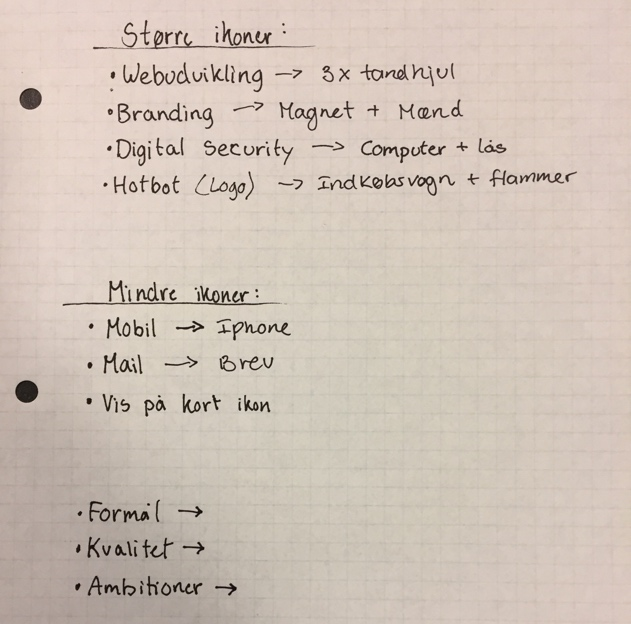 Større ikoner:
• Webudvikling → 3x tandhjul
• Branding → Magnet + Mænd
• Digital Security → Computer + lås
• Hotbot (Logo) → Indkøbsvogn + flammer
Mindre ikoner:
• Mobil → Iphone
• Mail → Brev
• Vis på kort ikon
• Formål →
• Kvalitet →
• Ambitioner →